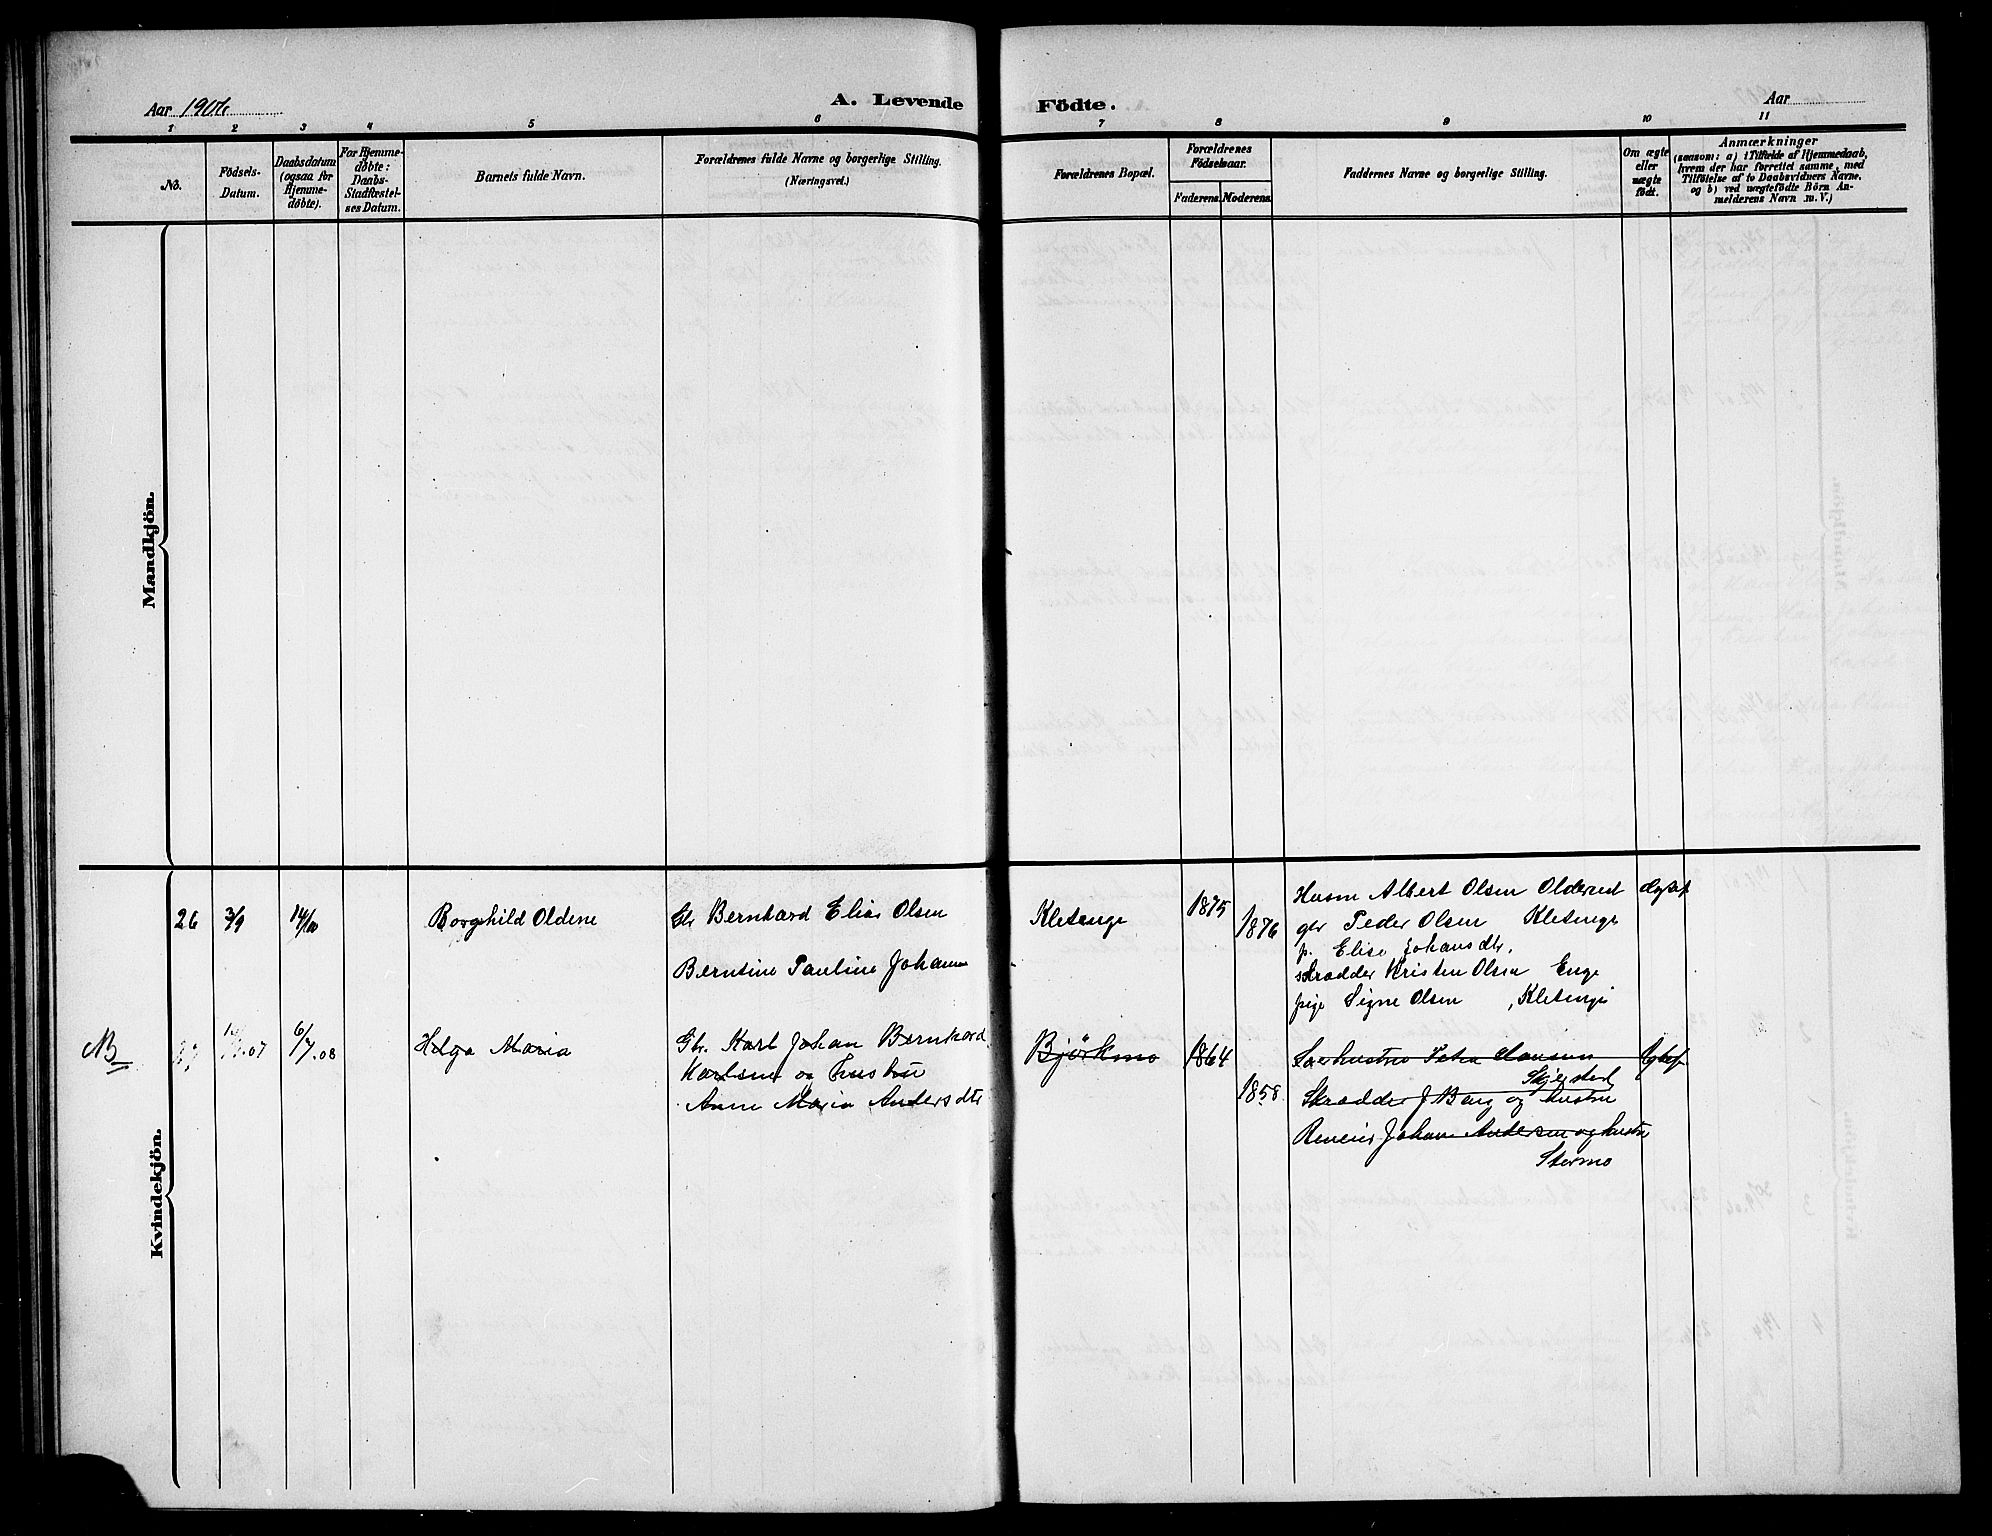 Aar 1906
A. Levende Födte.
Aar
1 2 3 4 5 6 7 8 9 10 11
No.
Födsels-
Datum.
Daabsdatum
(ogsaa for
Hjemme-
døbte).
For Hjemme-
døbte:
Daabs-
Stadfæstel-
ses Datum.
Barnets fulde Navn.
Forældrenes fulde Navne og borgerlige Stilling.
(Næringsvei.)
Forældrenes Bopæl.
Forældrenes
Födselsaar.
Faderens. Moderens.
Faddernes Navne og borgerlige Stilling.
Om ægte
eller
uægte
födt.
Anmærkninger
(saasom: a) i Tilfælde af Hjemmedaab,
hvem der har forrettet samme, med
Tilföielse af to Daabsvidners Navne.
og b) ved uægtefödte Börn An-
melderens Navn m. V.)
Mandkjön.
Kvindekjön.
26 3/9 Borghild Oldine
Gbr Bernhard Elias Olsen
Berntine Pauline Johann
Kletenge 1875
1876
Husm Albert Olsen
gbr Peder Olsen Kletenge
p. Elise Johansdtr.
skrædder Kristen Olsen Enge
pige Signe Olsen , Kletenge
NB
07 6/7.08 Helga Maria
Gbr. Karl Johan Bernhard
Karlsen og hustru
Anne Maria Andersdtr
Bjørkmo 1864
1858.
Petra Hansen
Skjerstad
Skrædder J Berg og hustru
Johan Andersen og hustru
Stormo